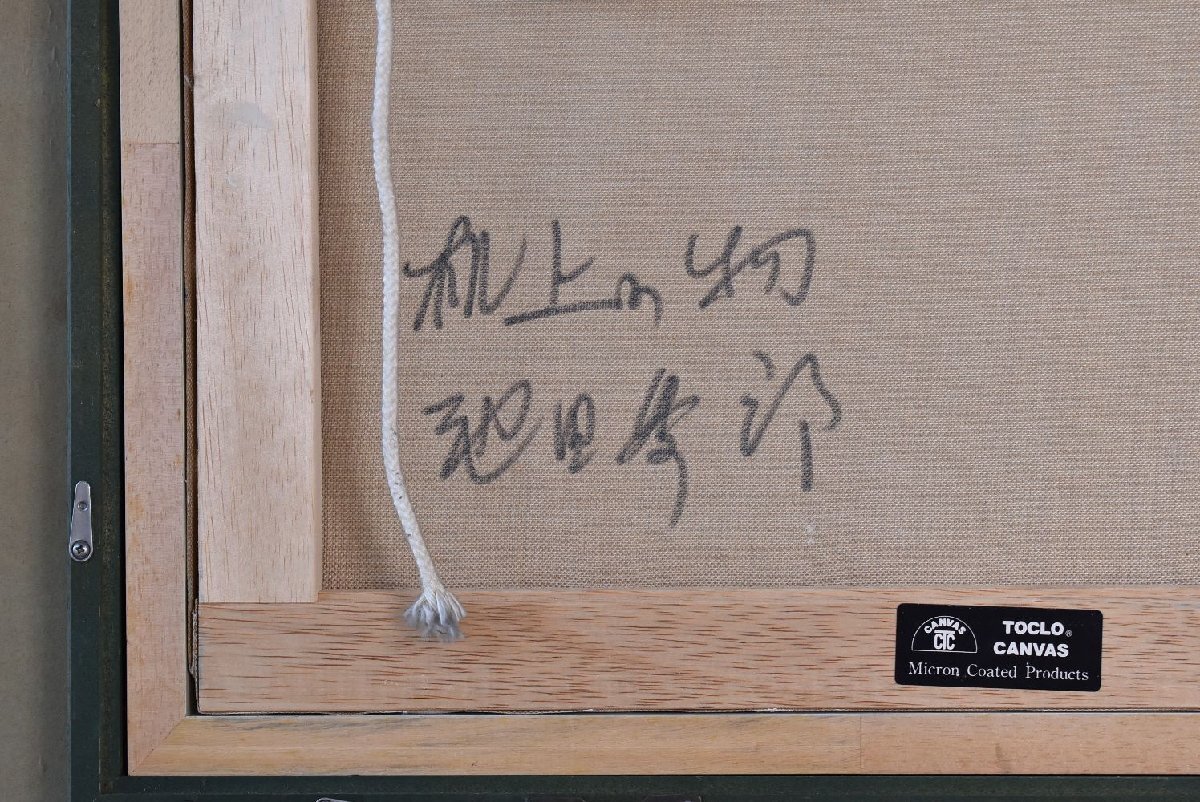 机上の物
池田
CANVAS
CTC
TOCLO®
CANVAS
Micron Coated Products